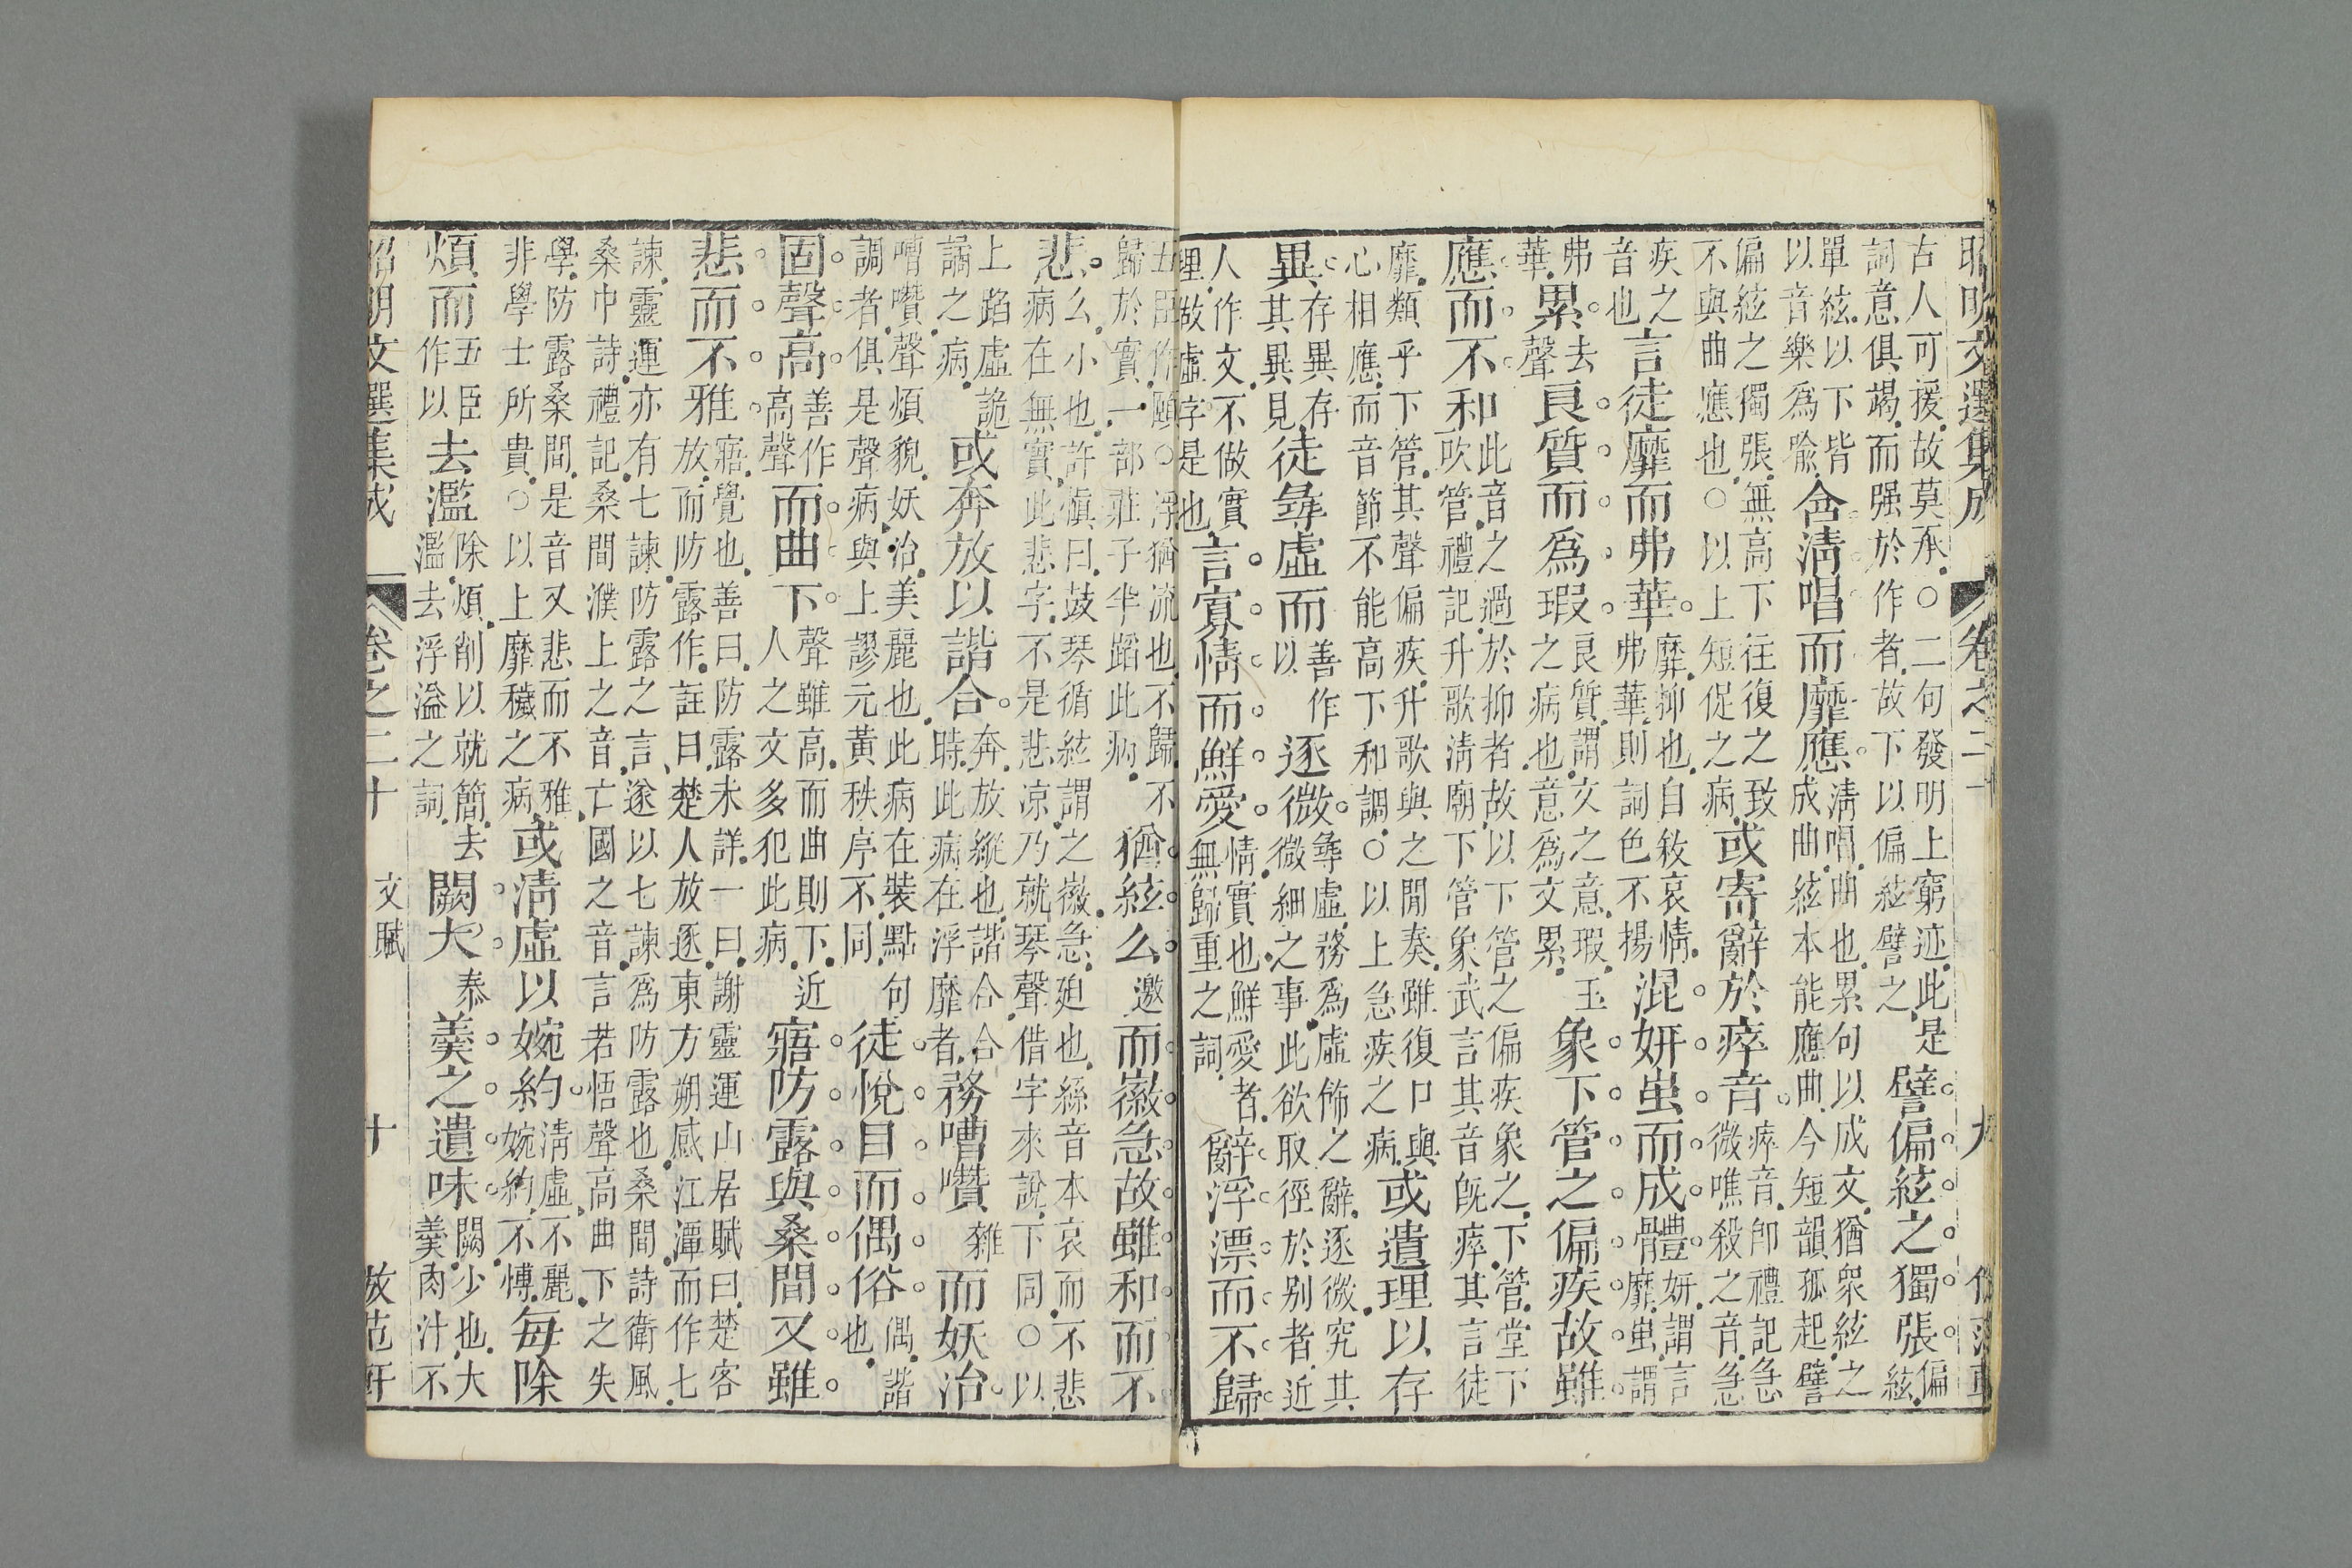 昭明文選集成　卷之二十　九
古人可援故莫承○二句發明上窮迹此是
詞意俱竭而强於作者故下以偏絃譬之
譬偏絃之獨張
偏
絃
單絃以下皆
以音樂爲喩
含淸唱而靡應
淸唱曲也累句以成文猶衆絃之
成曲絃本能應曲今短韻孤起譬
偏絃之獨張無高下往復之致
不與曲應也○以上短促之病
或寄辭於瘁音
瘁音卽禮記急
微噍殺之音急
疾之
音也
言徒靡而弗華
靡抑也自敘哀情
弗華則詞色不揚
混姸蚩而成體
姸謂言
靡蚩謂
弗
華
累
去
聲
良質而爲瑕
良質謂文之意瑕玉
之病也意爲文累
象下管之偏疾故雖
應而不和
此音之過於抑者故以下管之偏疾象之下管堂下
吹管禮記升歌淸廟下管象武言其音旣瘁其言徒
靡類乎下管其聲偏疾升歌與之閒奏雖復口與
心相應而音節不能高下和調○以上急疾之病
或遺理以存
異
存異存
其異見
徒尋虛而
善作
以
逐微
尋虛務爲虛飾之辭逐微究其
微細之事此欲取徑於别者近
人作文不做實
理做虛字是也
言寡情而鮮愛
情實也鮮愛者
無歸重之詞
辭浮漂而不歸
五臣作願○浮猶流也不歸不
歸於實一部莊子半蹈此病
猶絃么
邀
而徽急故雖和而不
悲
么小也許愼曰鼓琴循絃謂之徽急廹也絲音本哀而不悲
病在無實此悲字不是悲凉乃就琴聲借字來說下同○以
上蹈虛詭
譎之病
或奔放以諧合
奔放縱也諧合合
時此病在浮靡者
務嘈囋
雜
而妖冶
嘈囋聲煩貌妖冶美麗也此病在裝點句
調者俱是聲病與上謬元黃秩序不同
徒悅目而偶俗
偶諧
也
固聲高
善作
高聲
而曲下
聲雖高而曲則下近
人之文多犯此病
寤防露與桑間又雖
悲而不雅
寤覺也善曰防露未詳一曰謝靈運山居賦曰楚客
放而防露作註曰楚人放逐東方朔感江潭而作七
諫靈運亦有七諫防露之言遂以七諫爲防露也桑間詩衛風
桑中詩禮記桑間濮上之音亡國之音言若悟聲高曲下之失
學防露桑間是音又悲而不雅
非學士所貴○以上靡穢之病
或淸虛以婉約
淸虛不麗
婉約不愽
每除
煩而
五臣
作以
去濫
除煩削以就簡去
濫去浮溢之詞
闕大
泰
羹之遺味
闕少也大
羹肉汁不
昭明文選集成　卷之二十　文賦　十　放范軒